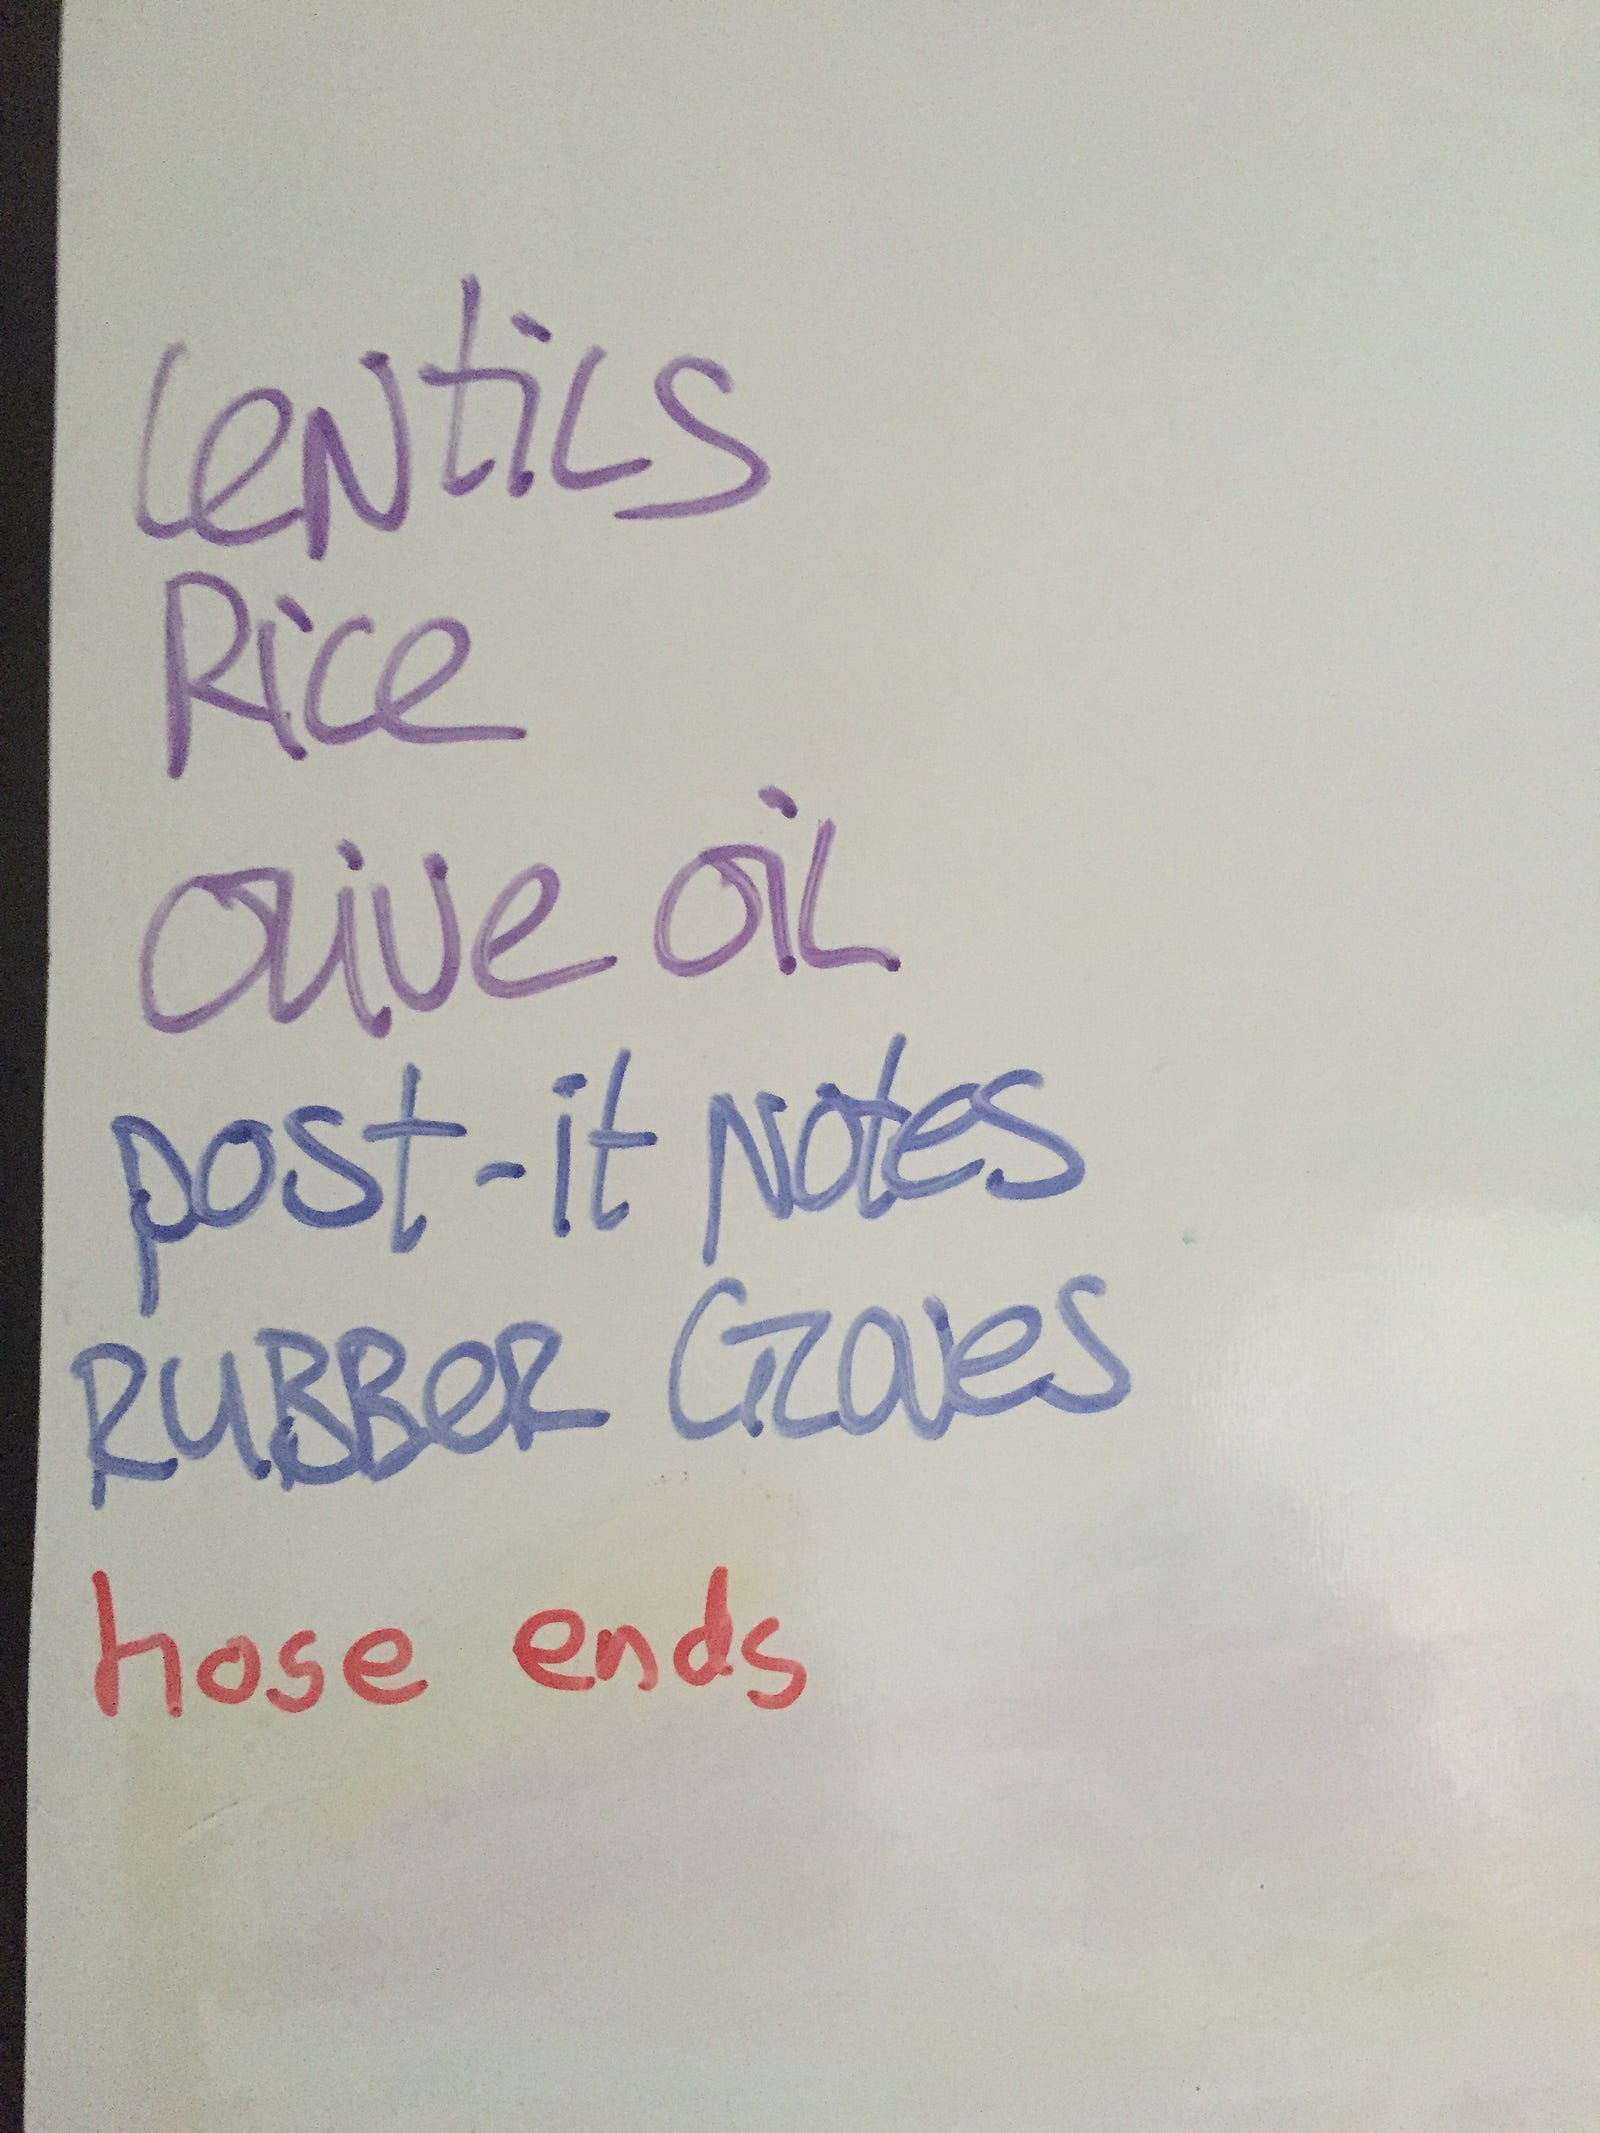 Lentils
Rice
olive oil
post-it notes
RUBBeR Gloves
hose ends